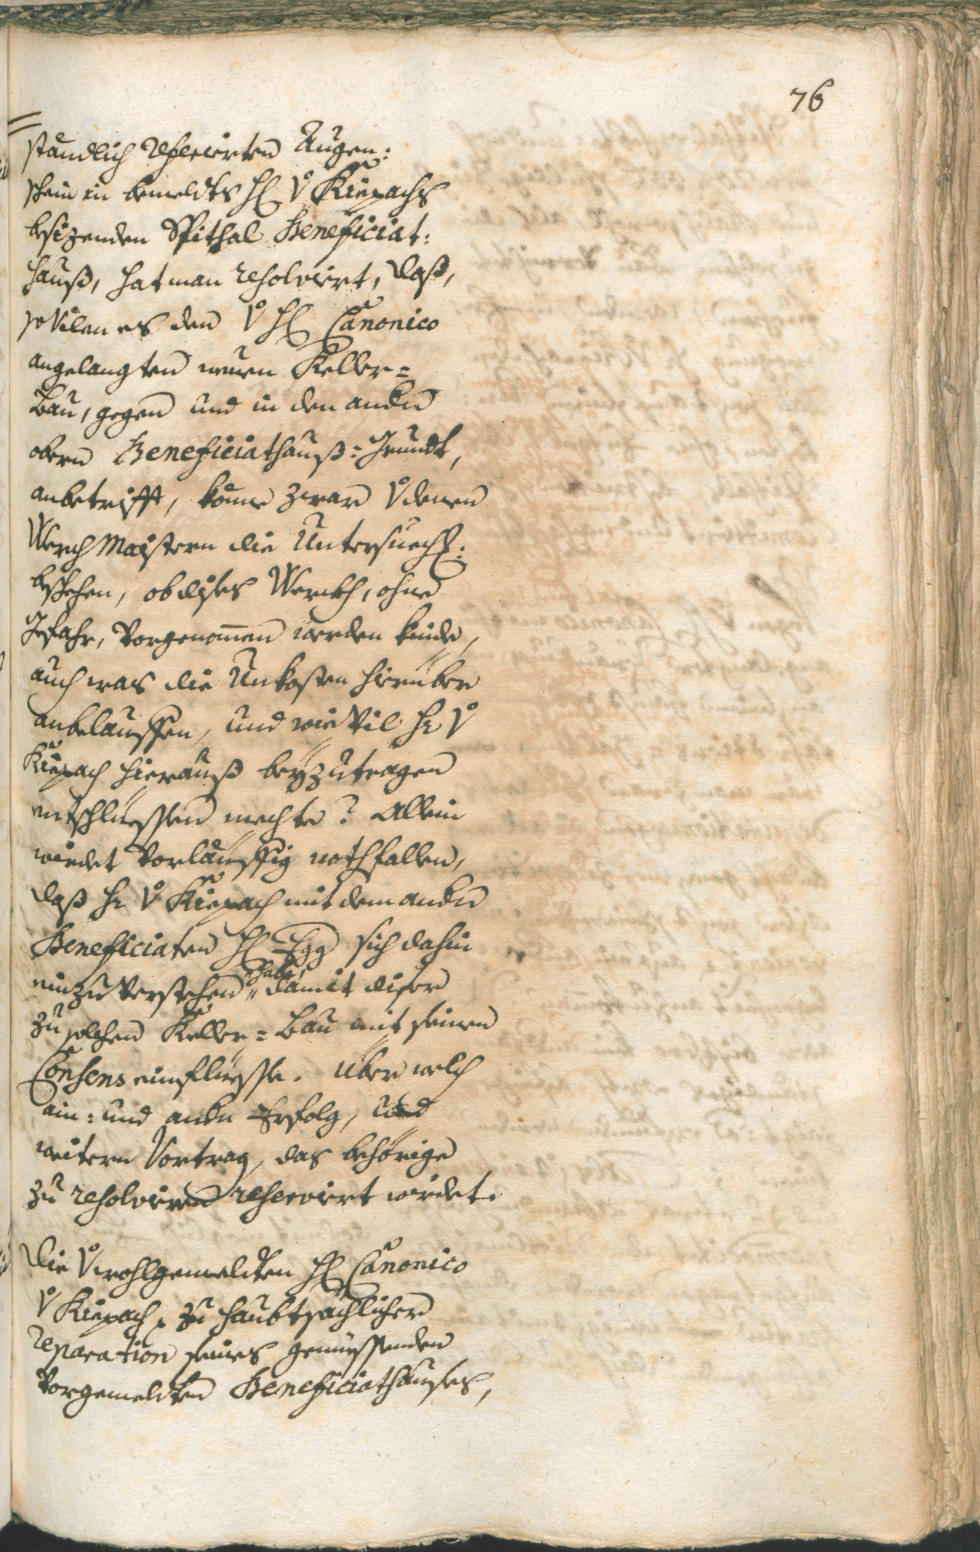 76
ständlich referirten Augen:
schein in bemeldts H: v Kiepachs
besizenden Spithal Beneficiat:
hauß, hat man resolvirt, daß,
sovilen es den v H: Canonico
angelangten neuen Keller=
Bau, gegen und in den andern
obern Beneficiathauß=Grundt,
anbetrifft, könne zwar v denen
Werch Maistern die Untersuech:
beschehen, ob dises Werckh, ohne
Gefahr, vorgenommen werden künde,
auch was die Unkosten hierüber
anbelauffen, und wie vil H: v
Kiepach hierauß beyzutragen
entschlüessen mechte? Allein
würdet vorläuffig nothfallen,
daß H: v Kiepach mit dem andern
Beneficiaten H: Egg sich dahin
einzuverstehen habe, damit diser
zu solchen Keller=Bau mit seinen
Consens einfliesse. Über welch
ain: und andern Erfolg, und
weitern Vortrag, das behörige
zu resolviren reservirt würdet.
Die v wohlgemeldten H: Canonico
v Kiepach, zu haubtsächlicher
reparation seines geniessenden
vorgemeldten Beneficiathauses,